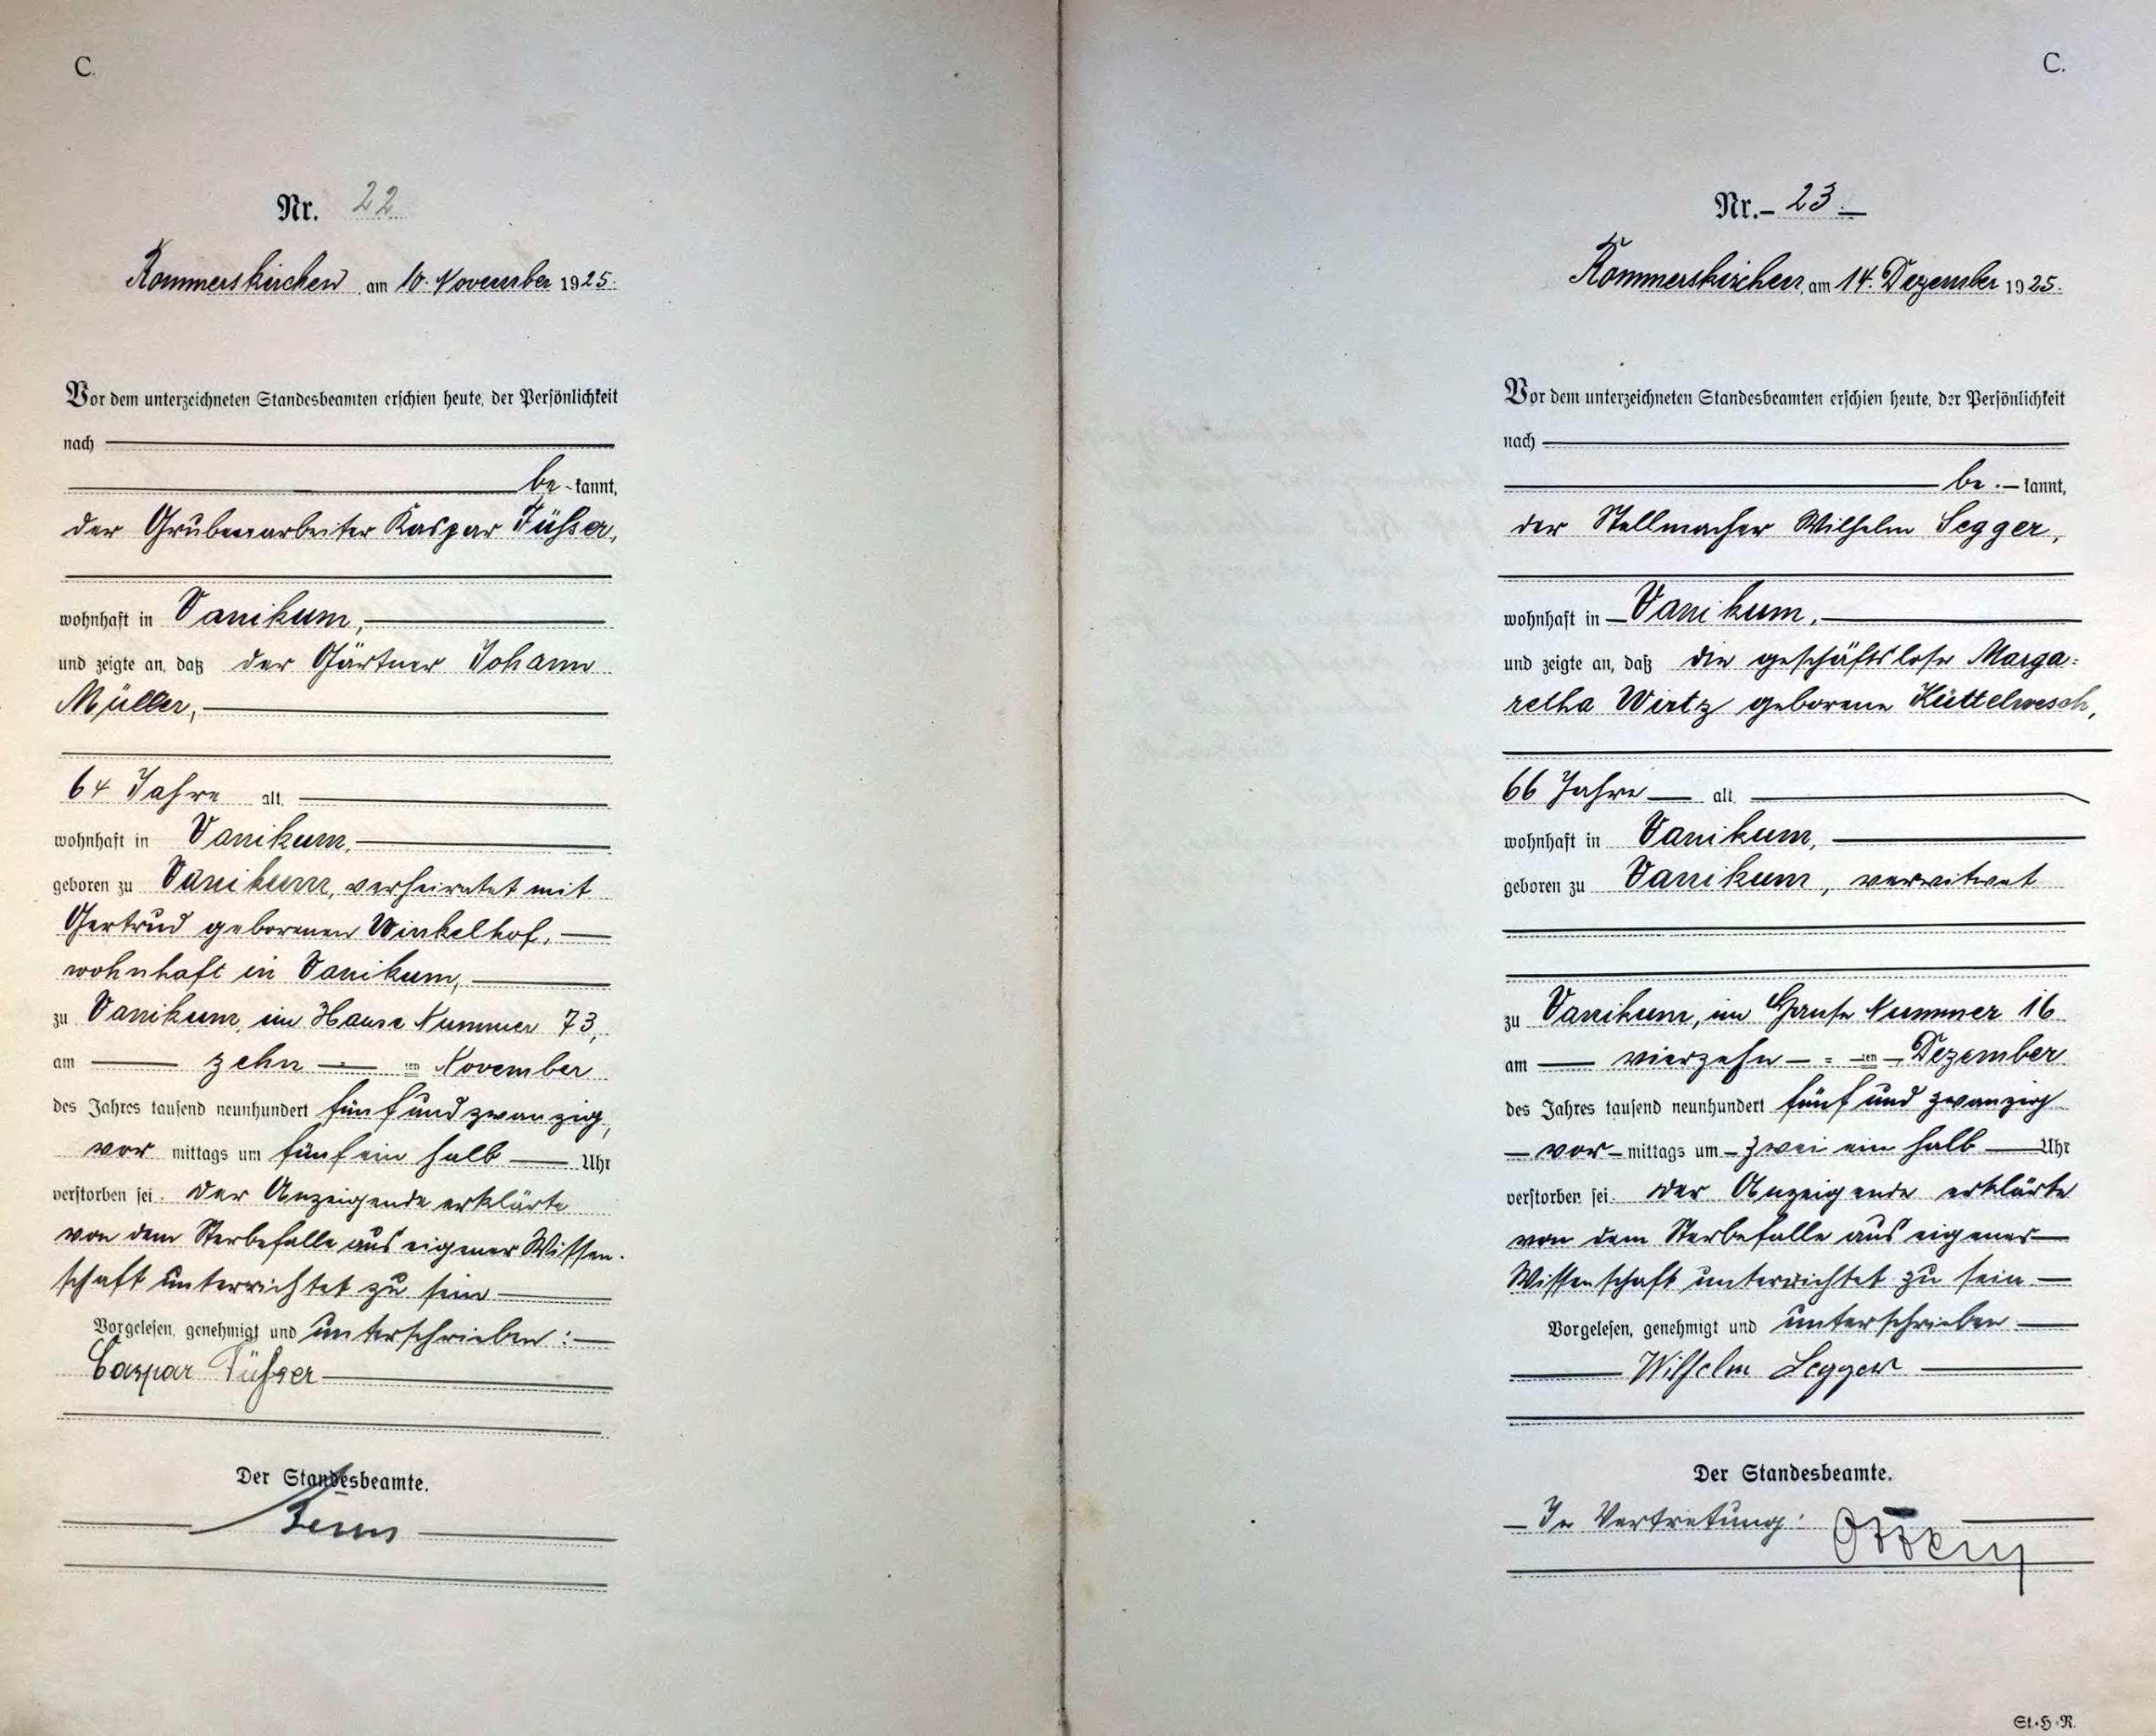 C.
Nr. 22
Rommerskirchen am 10. November 1925.
Vor dem unterzeichneten Standesbeamten erschien heute, der Persönlichkeit
nach
be-kannt,
der Grubenarbeiter Kaspar Füsser,
wohnhaft in Vanikum,
und zeigte an, daß der Gärtner Johann
Müller,
64 Jahre alt,
wohnhaft in Vanikum,
geboren zu Vanikum, verheiratet mit
Gertrud geborenen Winkelhof,
wohnhaft in Vanikum,
zu Vanikum, im Hause Nummer 73,
am zehn ten November
des Jahres tausend neunhundert fünfundzwanzig,
vor mittags um fünfein halb Uhr
verstorben sei. Der Anzeigende erklärte
von dem Sterbefalle aus eigener Wissen-
schaft unterrichtet zu sein
Vorgelesen, genehmigt und unterschrieben:
Caspar Füsser
Der Standesbeamte.
C.
Nr. 23
Rommerskirchen, am 14. Dezember 1925.
Vor dem unterzeichneten Standesbeamten erschien heute, der Persönlichkeit
nach
be-kannt,
der Stellmacher Wilhelm Segger,
wohnhaft in Vanikum,
und zeigte an, daß die geschäftslose Marga-
retha Wirtz geborene Hüttelwesch,
66 Jahre alt,
wohnhaft in Vanikum,
geboren zu Vanikum, verwitwet
zu Vanikum, im Hause Nummer 16
am vierzehn ten Dezember
des Jahres tausend neunhundert fünf und zwanzig
vor mittags um zwei ein halb Uhr
verstorben sei. Der Anzeigende erklärte
von dem Sterbefalle aus eigener
Wissenschaft unterrichtet zu sein
Vorgelesen, genehmigt und unterschrieben
Wilhelm Segger
Der Standesbeamte.
In Vertretung:
St.H.R.